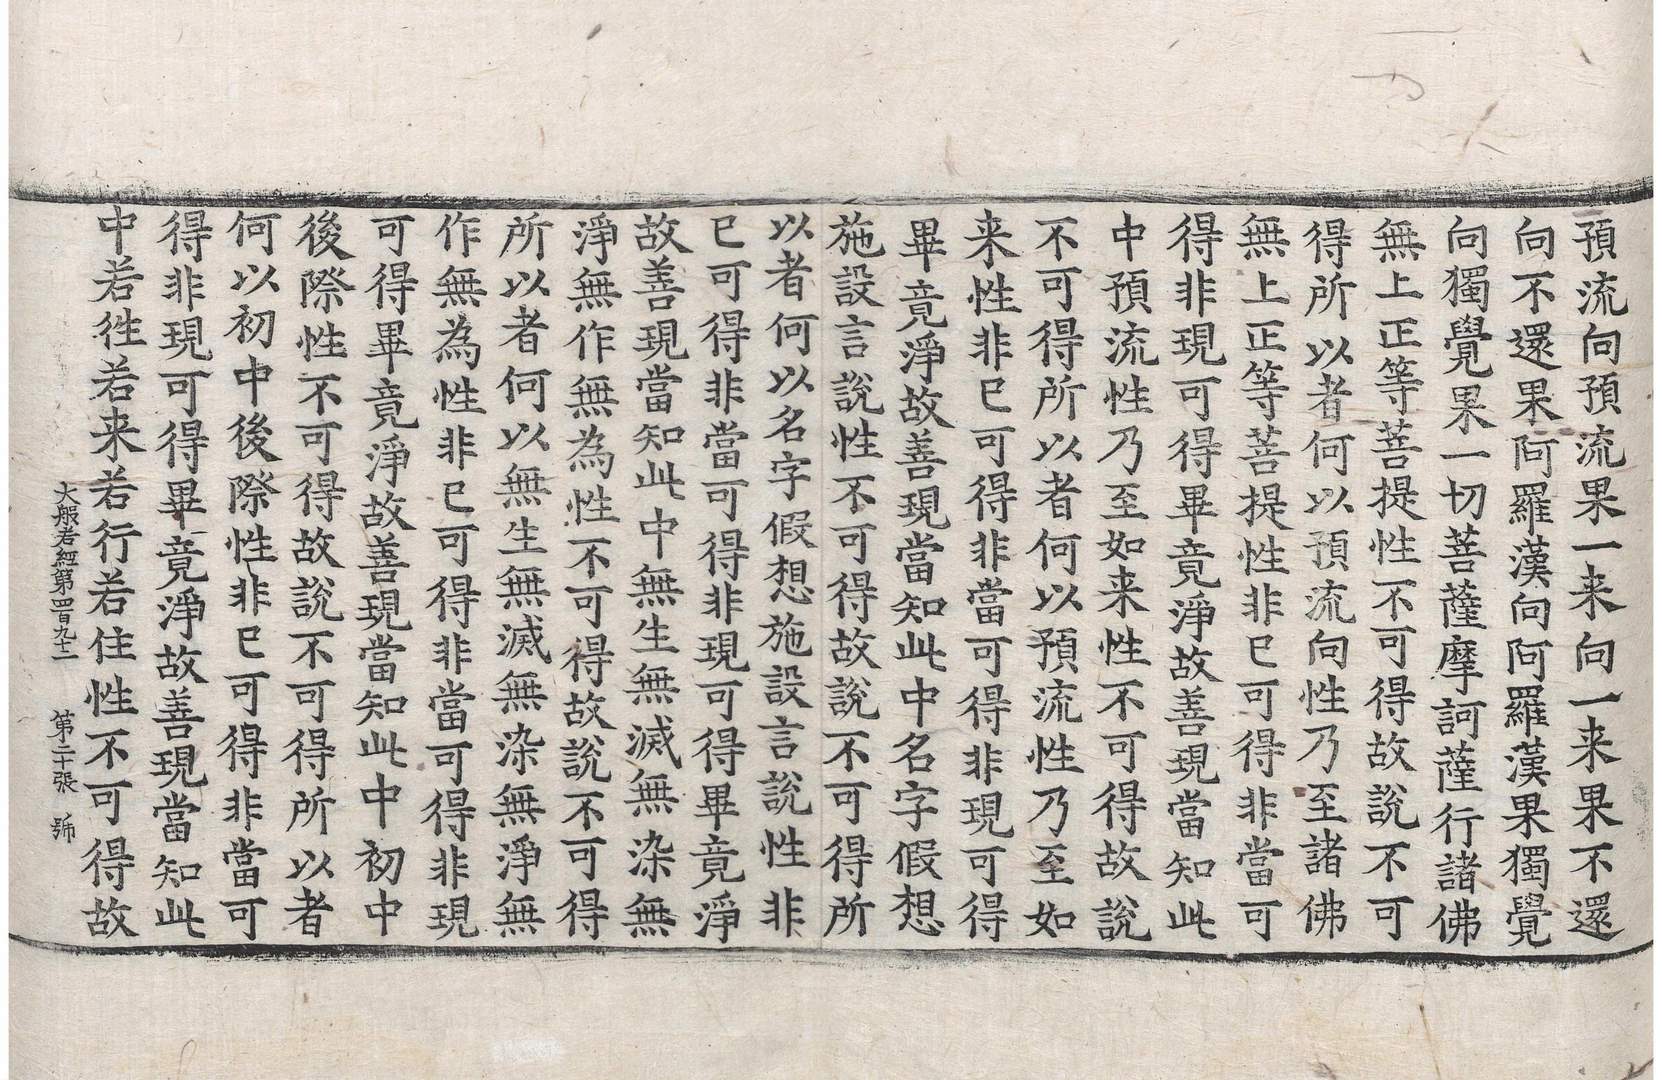 預流向預流果一来向一来果不還
向不還果阿羅漢向阿羅漢果獨覺
向獨覺果一切菩薩摩訶薩行諸佛
無上正等菩提性不可得故說不可
得所以者何以預流向性乃至諸佛
無上正等菩提性非已可得非當可
得非現可得畢竟淨故善現當知此
中預流性乃至如来性不可得故說
不可得所以者何以預流性乃至如
来性非已可得非當可得非現可得
畢竟淨故善現當知此中名字假想
施設言說性不可得故說不可得所
以者何以名字假想施設言說性非
已可得非當可得非現可得畢竟淨
故善現當知此中無生無滅無染無
淨無作無為性不可得故說不可得
所以者何以無生無滅無染無淨無
作無為性非已可得非當可得非現
可得畢竟淨故善現當知此中初中
後際性不可得故說不可得所以者
何以初中後際性非已可得非當可
得非現可得畢竟淨故善現當知此
中若徃若来若行若住性不可得故
大般若經第四百九十一 第二十張 號